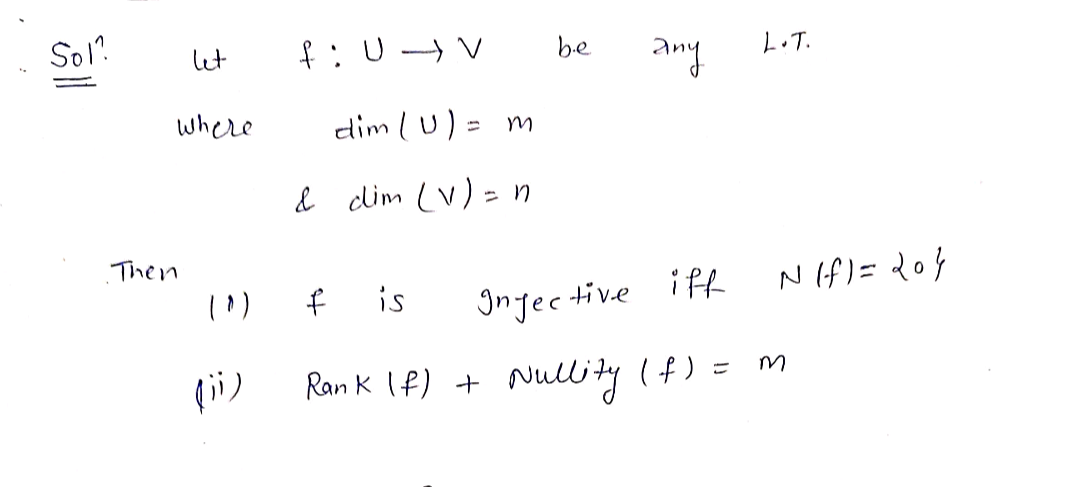 Solⁿ. let f : U → V be any L.T.
where dim(U) = m
& dim (V) = n
Then
(i) f is Injective iff N(f) = {0}
(ii) Rank (f) + Nullity (f) = m